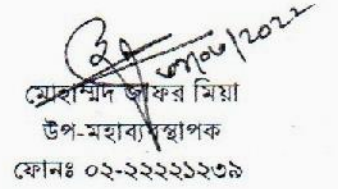 ৩০/০৬/2022
মোহাম্মদ জাফর মিয়া
উপ-মহাব্যবস্থাপক
ফোনঃ ০২-২২২২১২৩৯